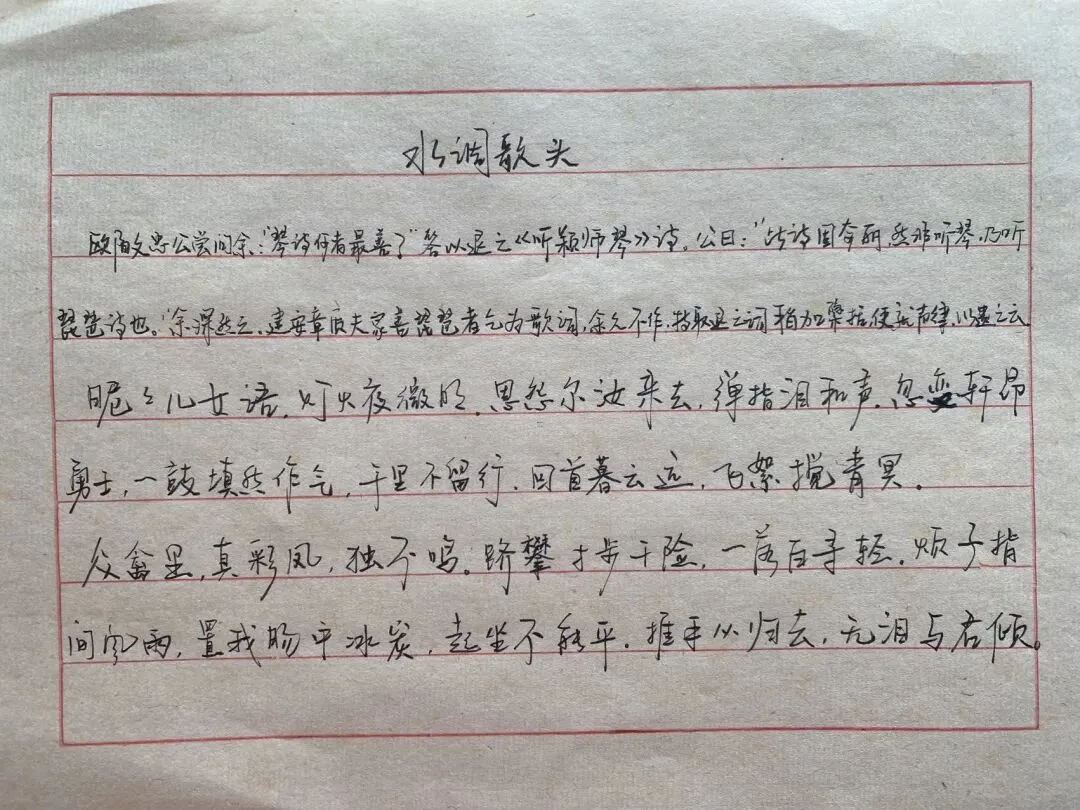 水调歌头
欧阳文忠公尝问余："琴诗何者最善了"答以退之《听颖师琴》诗。公曰："此诗固奇丽,然非听琴,乃听
琵琶诗也。"余深然之,建安章质夫家善琵琶者乞为歌词,余久不作,特取退之词稍加櫽括,使就声律,以遗之云
昵々儿女语,灯火夜微明。恩怨尔汝来去,弹指泪和声。忽变轩昂
勇士,一鼓填然作气,千里不留行。回首暮云远,飞絮搅青冥。
众禽里,真彩凤,独不鸣。跻攀寸步千险,一落百寻轻。烦子指
间风雨,置我肠中冰炭,起坐不能平。推手从归去,无泪与君倾。